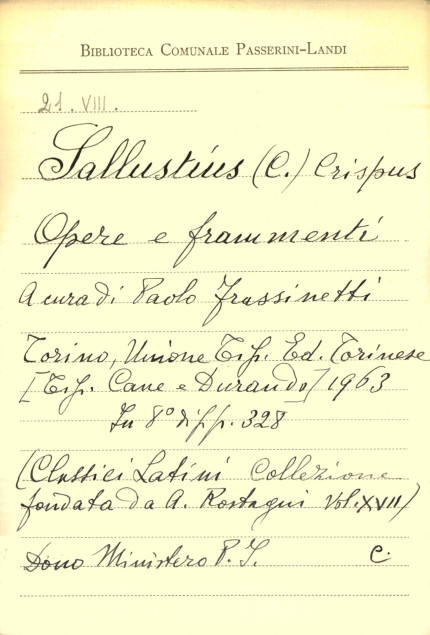 BIBLIOTECA COMUNALE PASSERINI-LANDI
21. VIII.
Sallustius (C.) Crispus
Opere e frammenti
A cura di Paolo Frassinetti
Torino, Unione Tip. Ed. Torinese
[Tip. Cane e Durando] 1963
In 8° di pp. 328
(Classici Latini Collezione
fondata da A. Rostagni Vol. XVII)
Dono Ministero P. I. C.